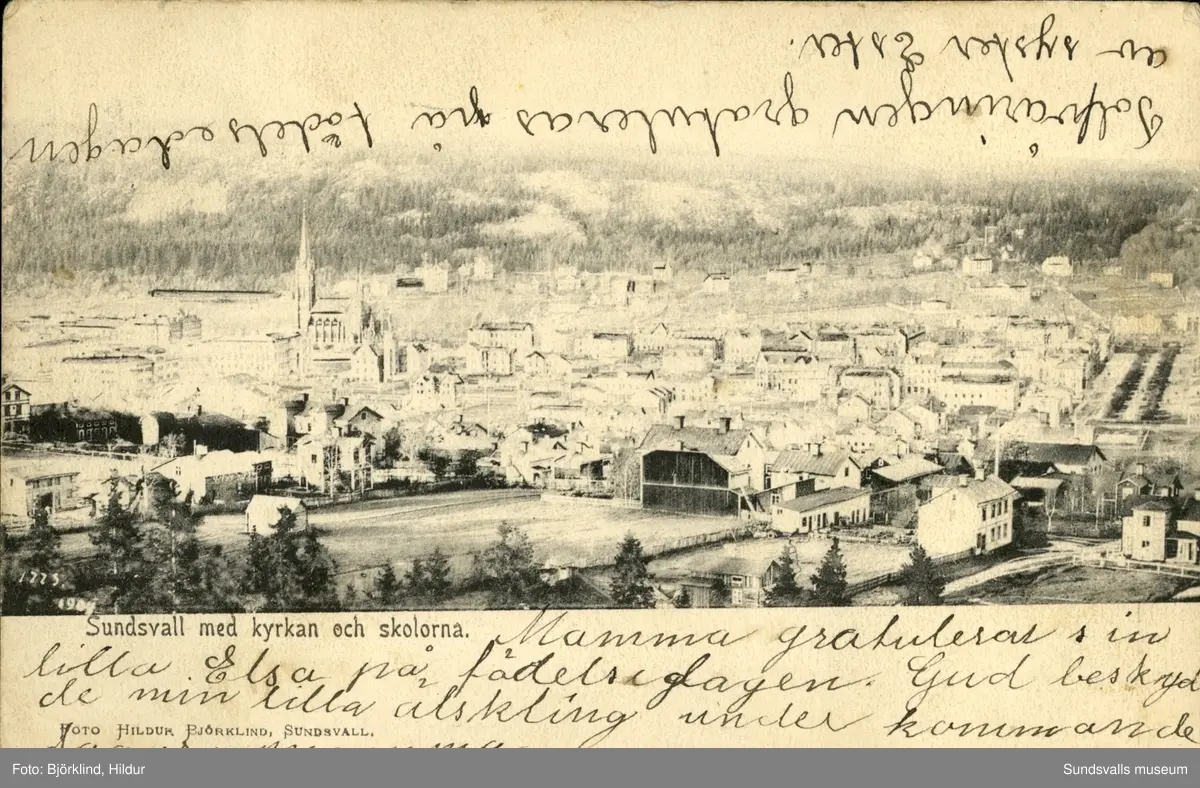 Tolfåringen gratuleras på födelsedagen
av syster Ester.
Sundsvall med kyrkan och skolorna.
Mamma gratulerar sin
lilla Elsa på födelsedagen. Gud beskyd
de min lilla alskling under kommande
FOTO HILDUR BJÖRKLIND, SUNDSVALL.
Foto: Björklind, Hildur
Sundsvalls museum